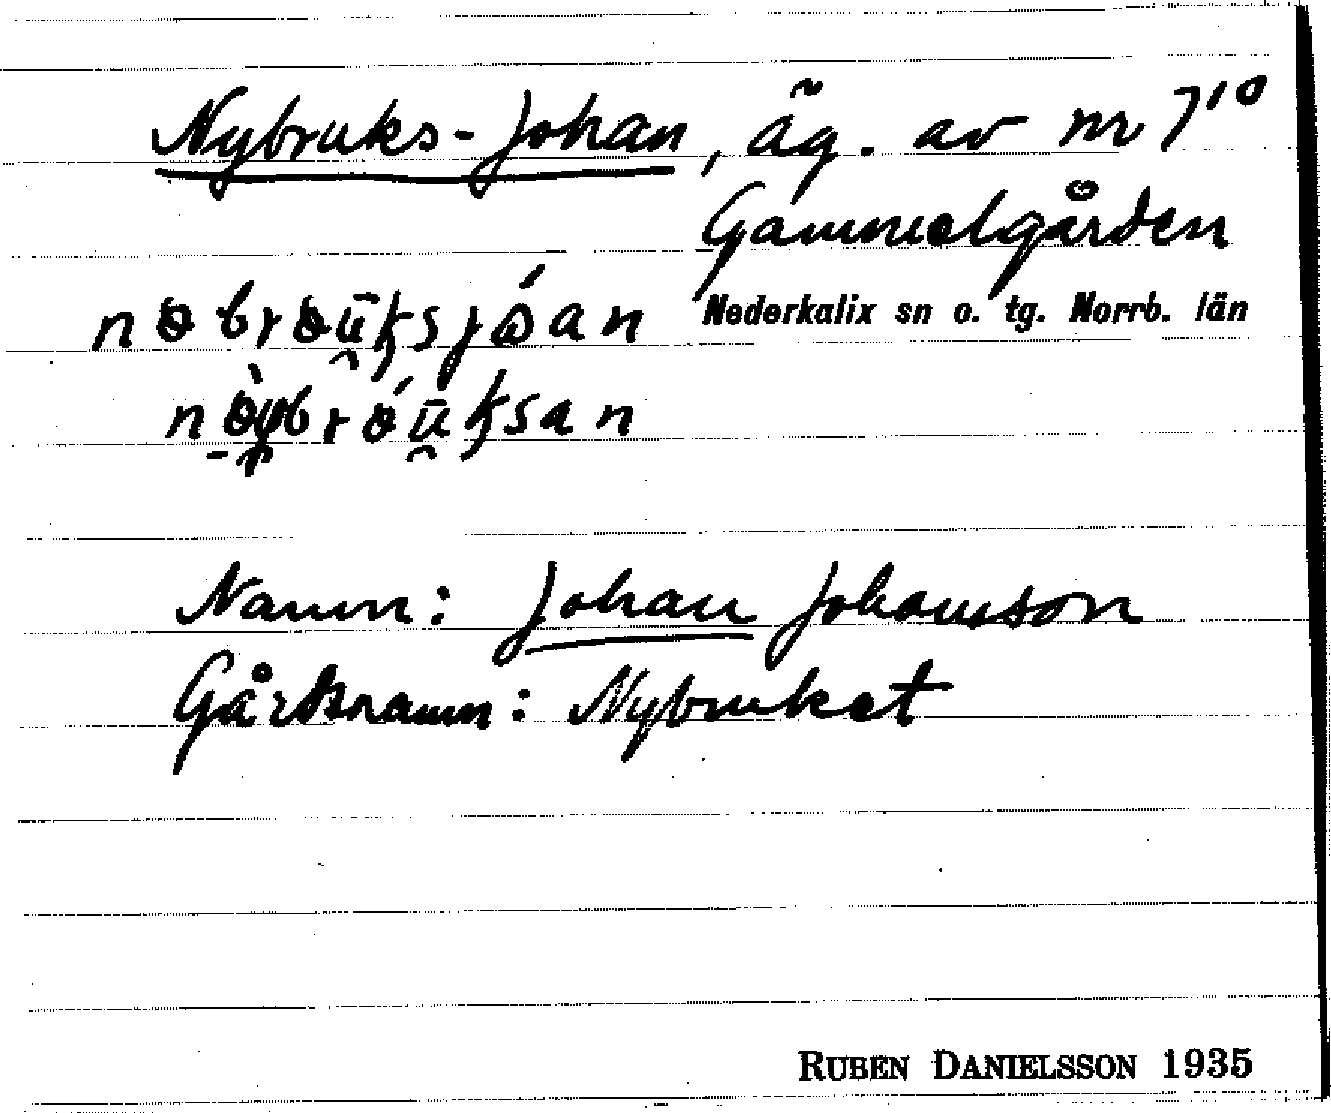 Nybruks-Johan, äg. av nr 7¹⁰
Gammelgården
Nederkalix sn o. tg. Norrb. län
Namn: Johan Johansson
Gårdsnamn: Nybruket
RUBEN DANIELSSON 1935